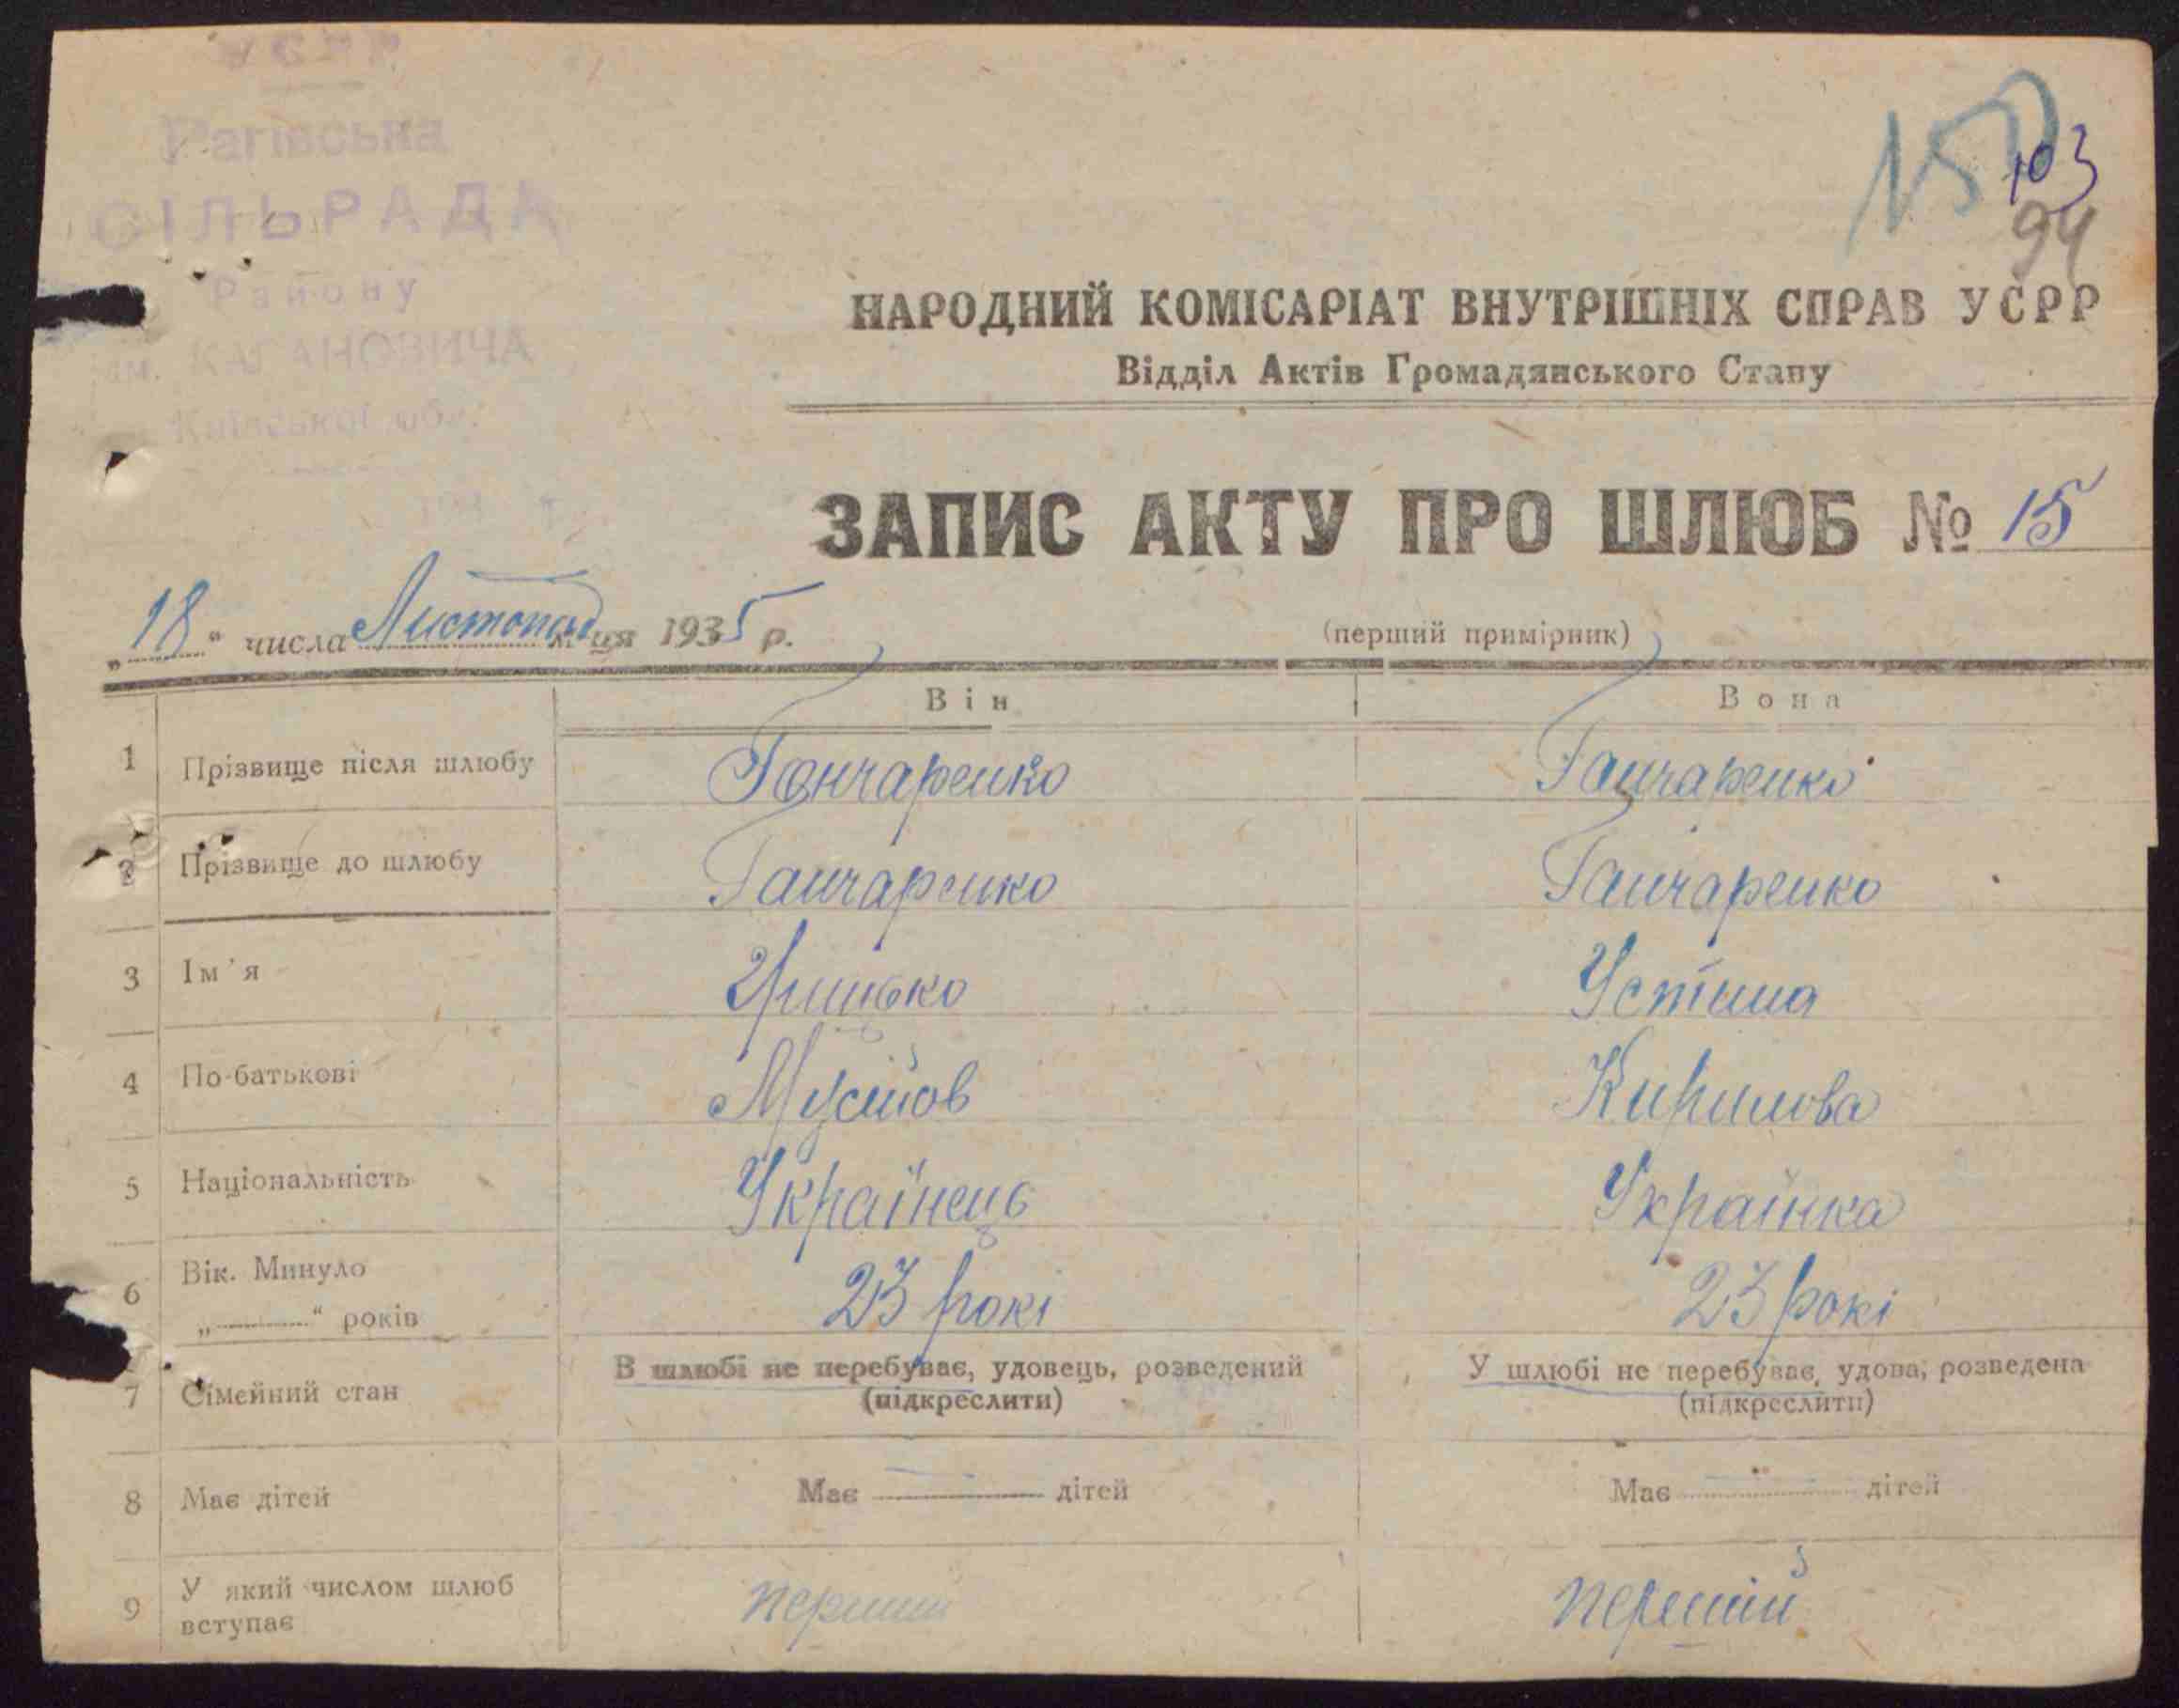 УСРР
Рагівська
СІЛЬРАДА
Району
ім. КАГАНОВИЧА
Київської обл.
15
103
94
НАРОДНИЙ КОМІСАРІАТ ВНУТРІШНІХ СПРАВ УСРР
Відділ Актів Громадянського Стану
ЗАПИС АКТУ ПРО ШЛЮБ № 15
„18“ числа Листопад м-ця 1935 р.
(перший примірник)
Він Вона
1 Прізвище після шлюбу Гончаренко Ганчаренко
2 Прізвище до шлюбу Ганчаренко Ганчаренко
3 Ім'я Грицько Устина
4 По-батькові Мусійов Кирилова
5 Національність Українець Українка
6 Вік. Минуло „ “ років 23 рокі 23 рокі
7 Сімейний стан В шлюбі не перебуває, удовець, розведений (підкреслити) У шлюбі не перебуває, удова, розведена (підкреслити)
8 Має дітей Має — дітей Має — дітей
9 У який числом шлюб вступає перший перший